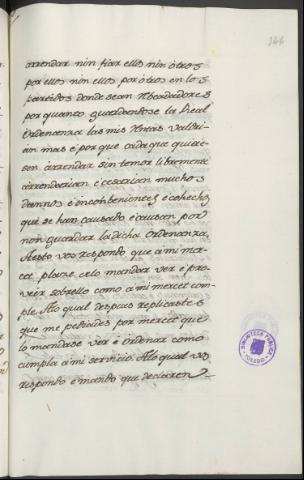 246
arrendar nin fiar ellos nin otros
por ellos nin ellos por otros en los
partidos donde sean Recadadores
por quanto guardandose la Real
Ordenanza las mis Rentas valdri-
an mas è por que cada que quisie-
sen arrendar sin temor libremente
arrendarian è cesarian muchos
dannos è inconbenientes è cohechos
que se han causado è causan por
non guardar la dicha Ordenanza,
A esto vos respondo que à mi mer-
ced plaze, èlo mandar ver è pro-
veèr sobrello como à mi merced cum-
ple. Alo qual despues replicastes
que me pediades por merced que
lo mandase ver è Ordenar como
cumpla à mi servicio. Alo qual vos
respondo è mando que declaren
BIBLIOTECA PUBLICA
TOLEDO